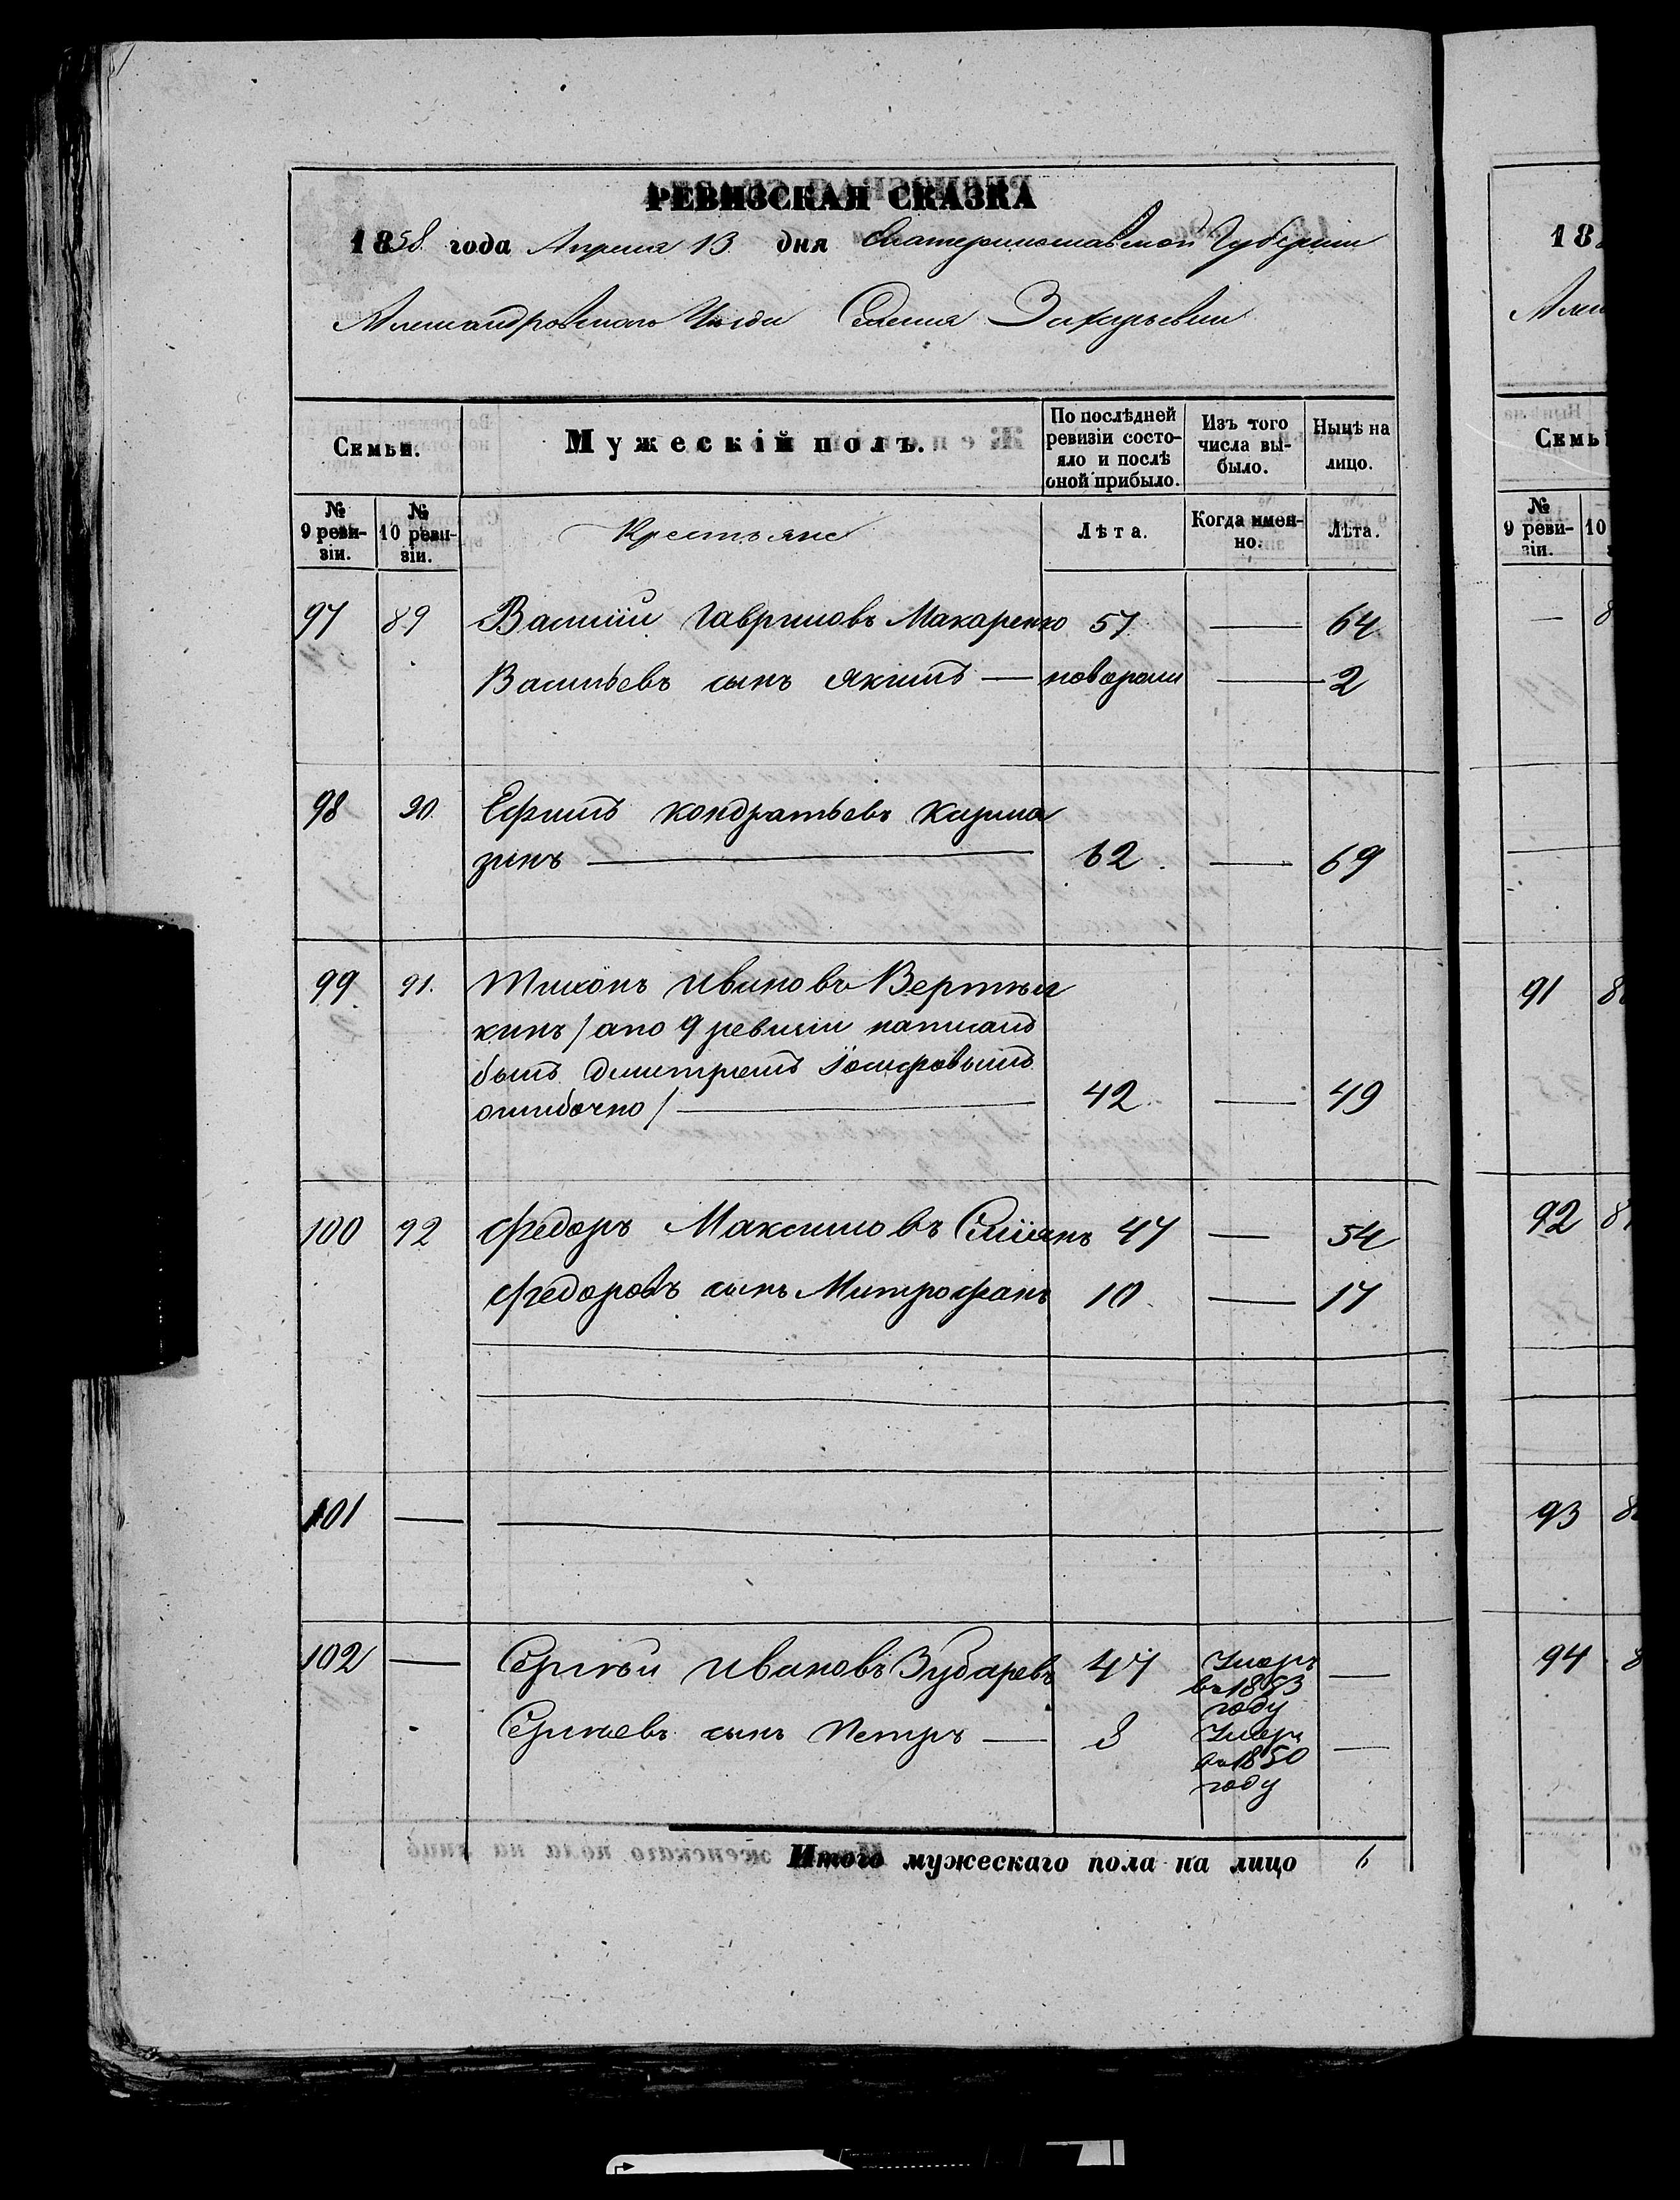 РЕВИЗСКАЯ СКАЗКА
1858 года Апреля 13 дня Екатеринославской Губернии
Александровского Уезда Селения Захарьевки
Семьи.
Мужескій полъ.
По послѣдней ревизіи состояло и послѣ оной прибыло.
Изъ того числа выбыло.
Нынѣ на лицо.
№ 9 ревизіи.
№ 10 ревизіи.
Крестьяне
Лѣта.
Когда именно.
Лѣта.
97 89 Василій Гавриловъ Макаренко 57 — 64
Васильевъ сынъ Якимъ — новорожд — 2
98 90. Ефимъ Кондратьевъ Карма
зинъ — 62. — 69
99. 91. Тихонъ Ивановъ Вертѣл
кинъ / а по 9 ревизіи написанъ
былъ Дмитріемъ Іосифовымъ
ошибочно / — 42. — 49
100 92 Федоръ Максимовъ 47 — 54
Федоровъ сынъ Митрофанъ 10 — 17
101 —
102 — Сергѣй Ивановъ Зубаревъ 47 Умеръ —
въ 1853
году
Сергѣевъ сынъ Петръ — 8 Умеръ —
въ 1850
году
Итого мужескаго пола на лицо 6
18
Семьи
№ 9 ревизіи.
10
— 8
91 8
92 8
93 8
94 8